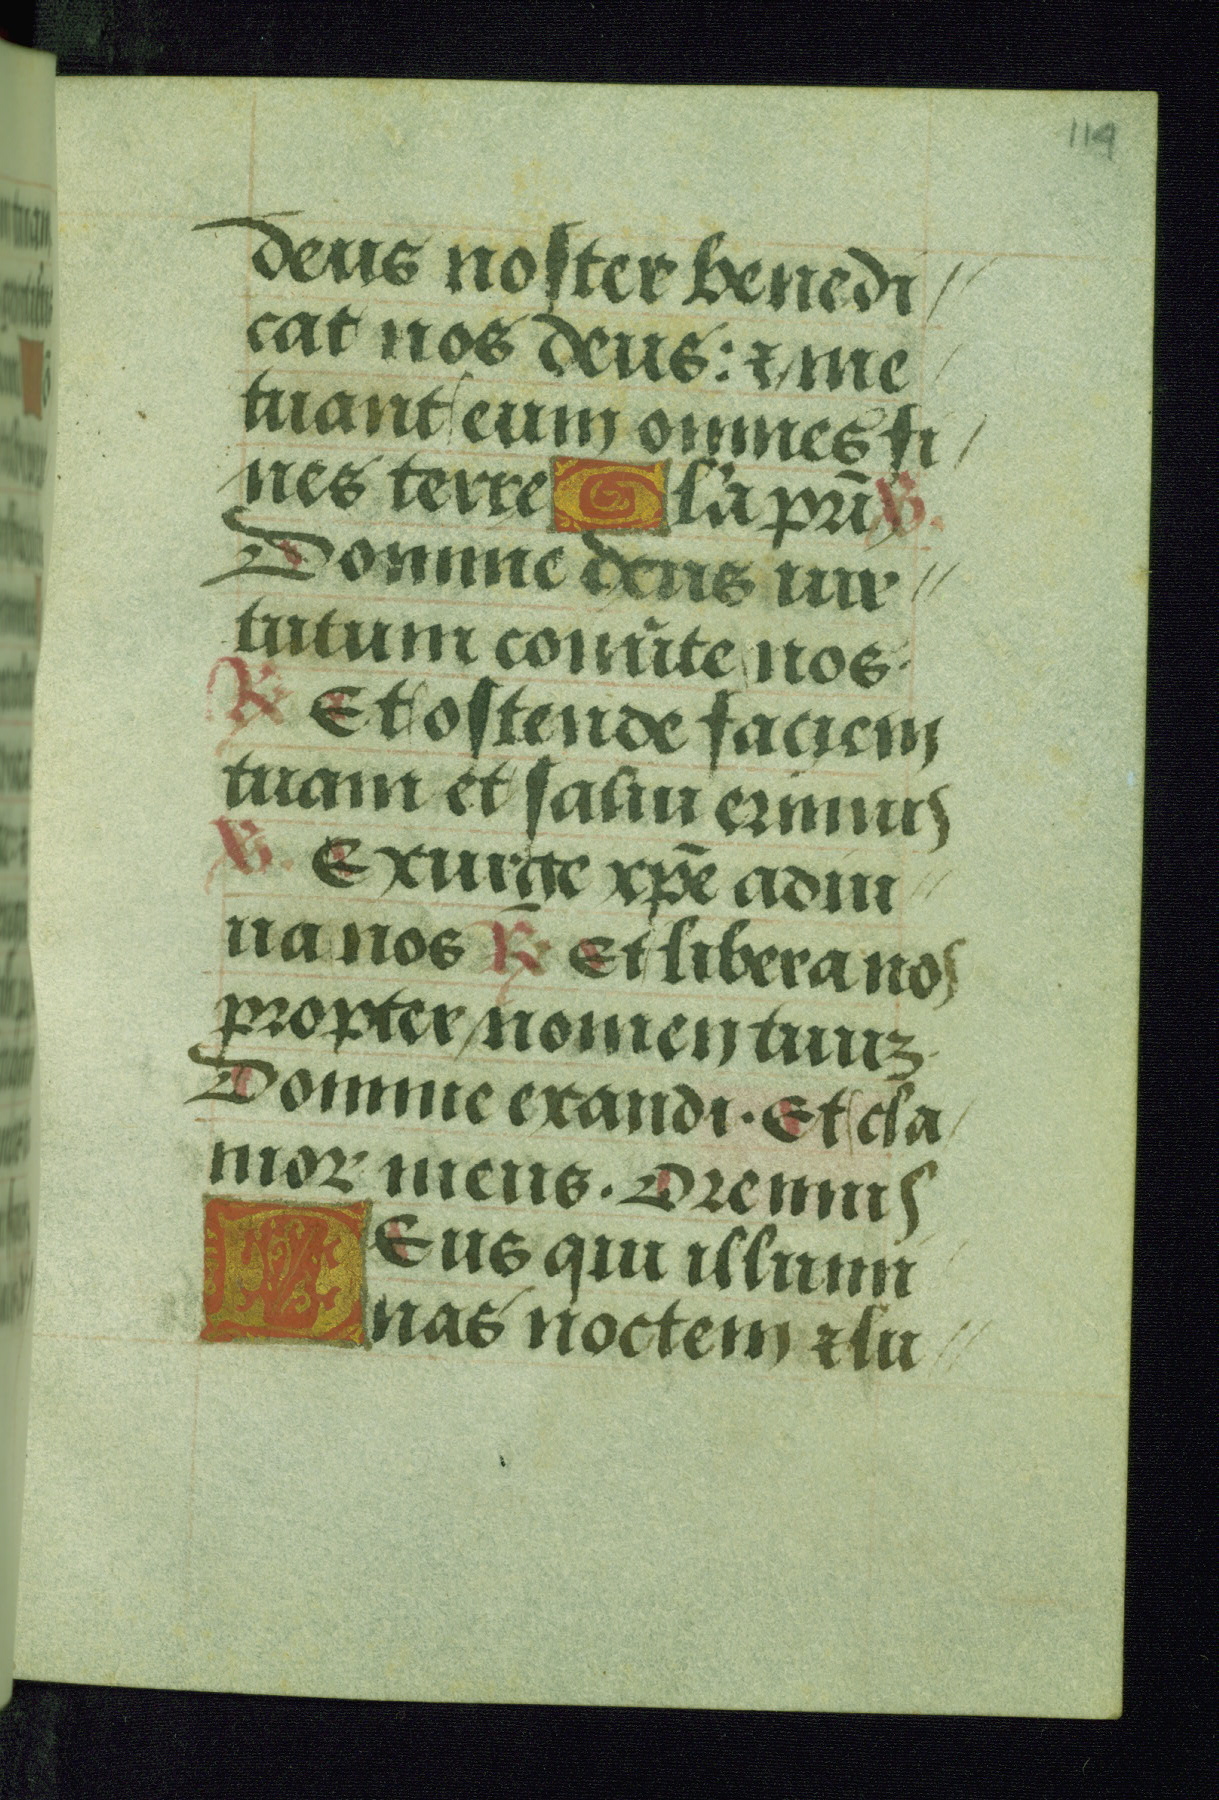 114
deus noster benedi
cat nos deus: ⁊ me
tuant eum omnes fi
nes terre Gl'a pr̄i ℣.
Domine deus uir
tutum conu̾te nos.
℟ Et ostende faciem
tuam et salui erimus
℣. Exurge xp̄e adiu
ua nos ℟ Et libera nos
propter nomen tuuꝫ.
Domine exaudi. Et cla
mor meus. Oremus
DEus qui illumi
nas noctem ⁊ lu